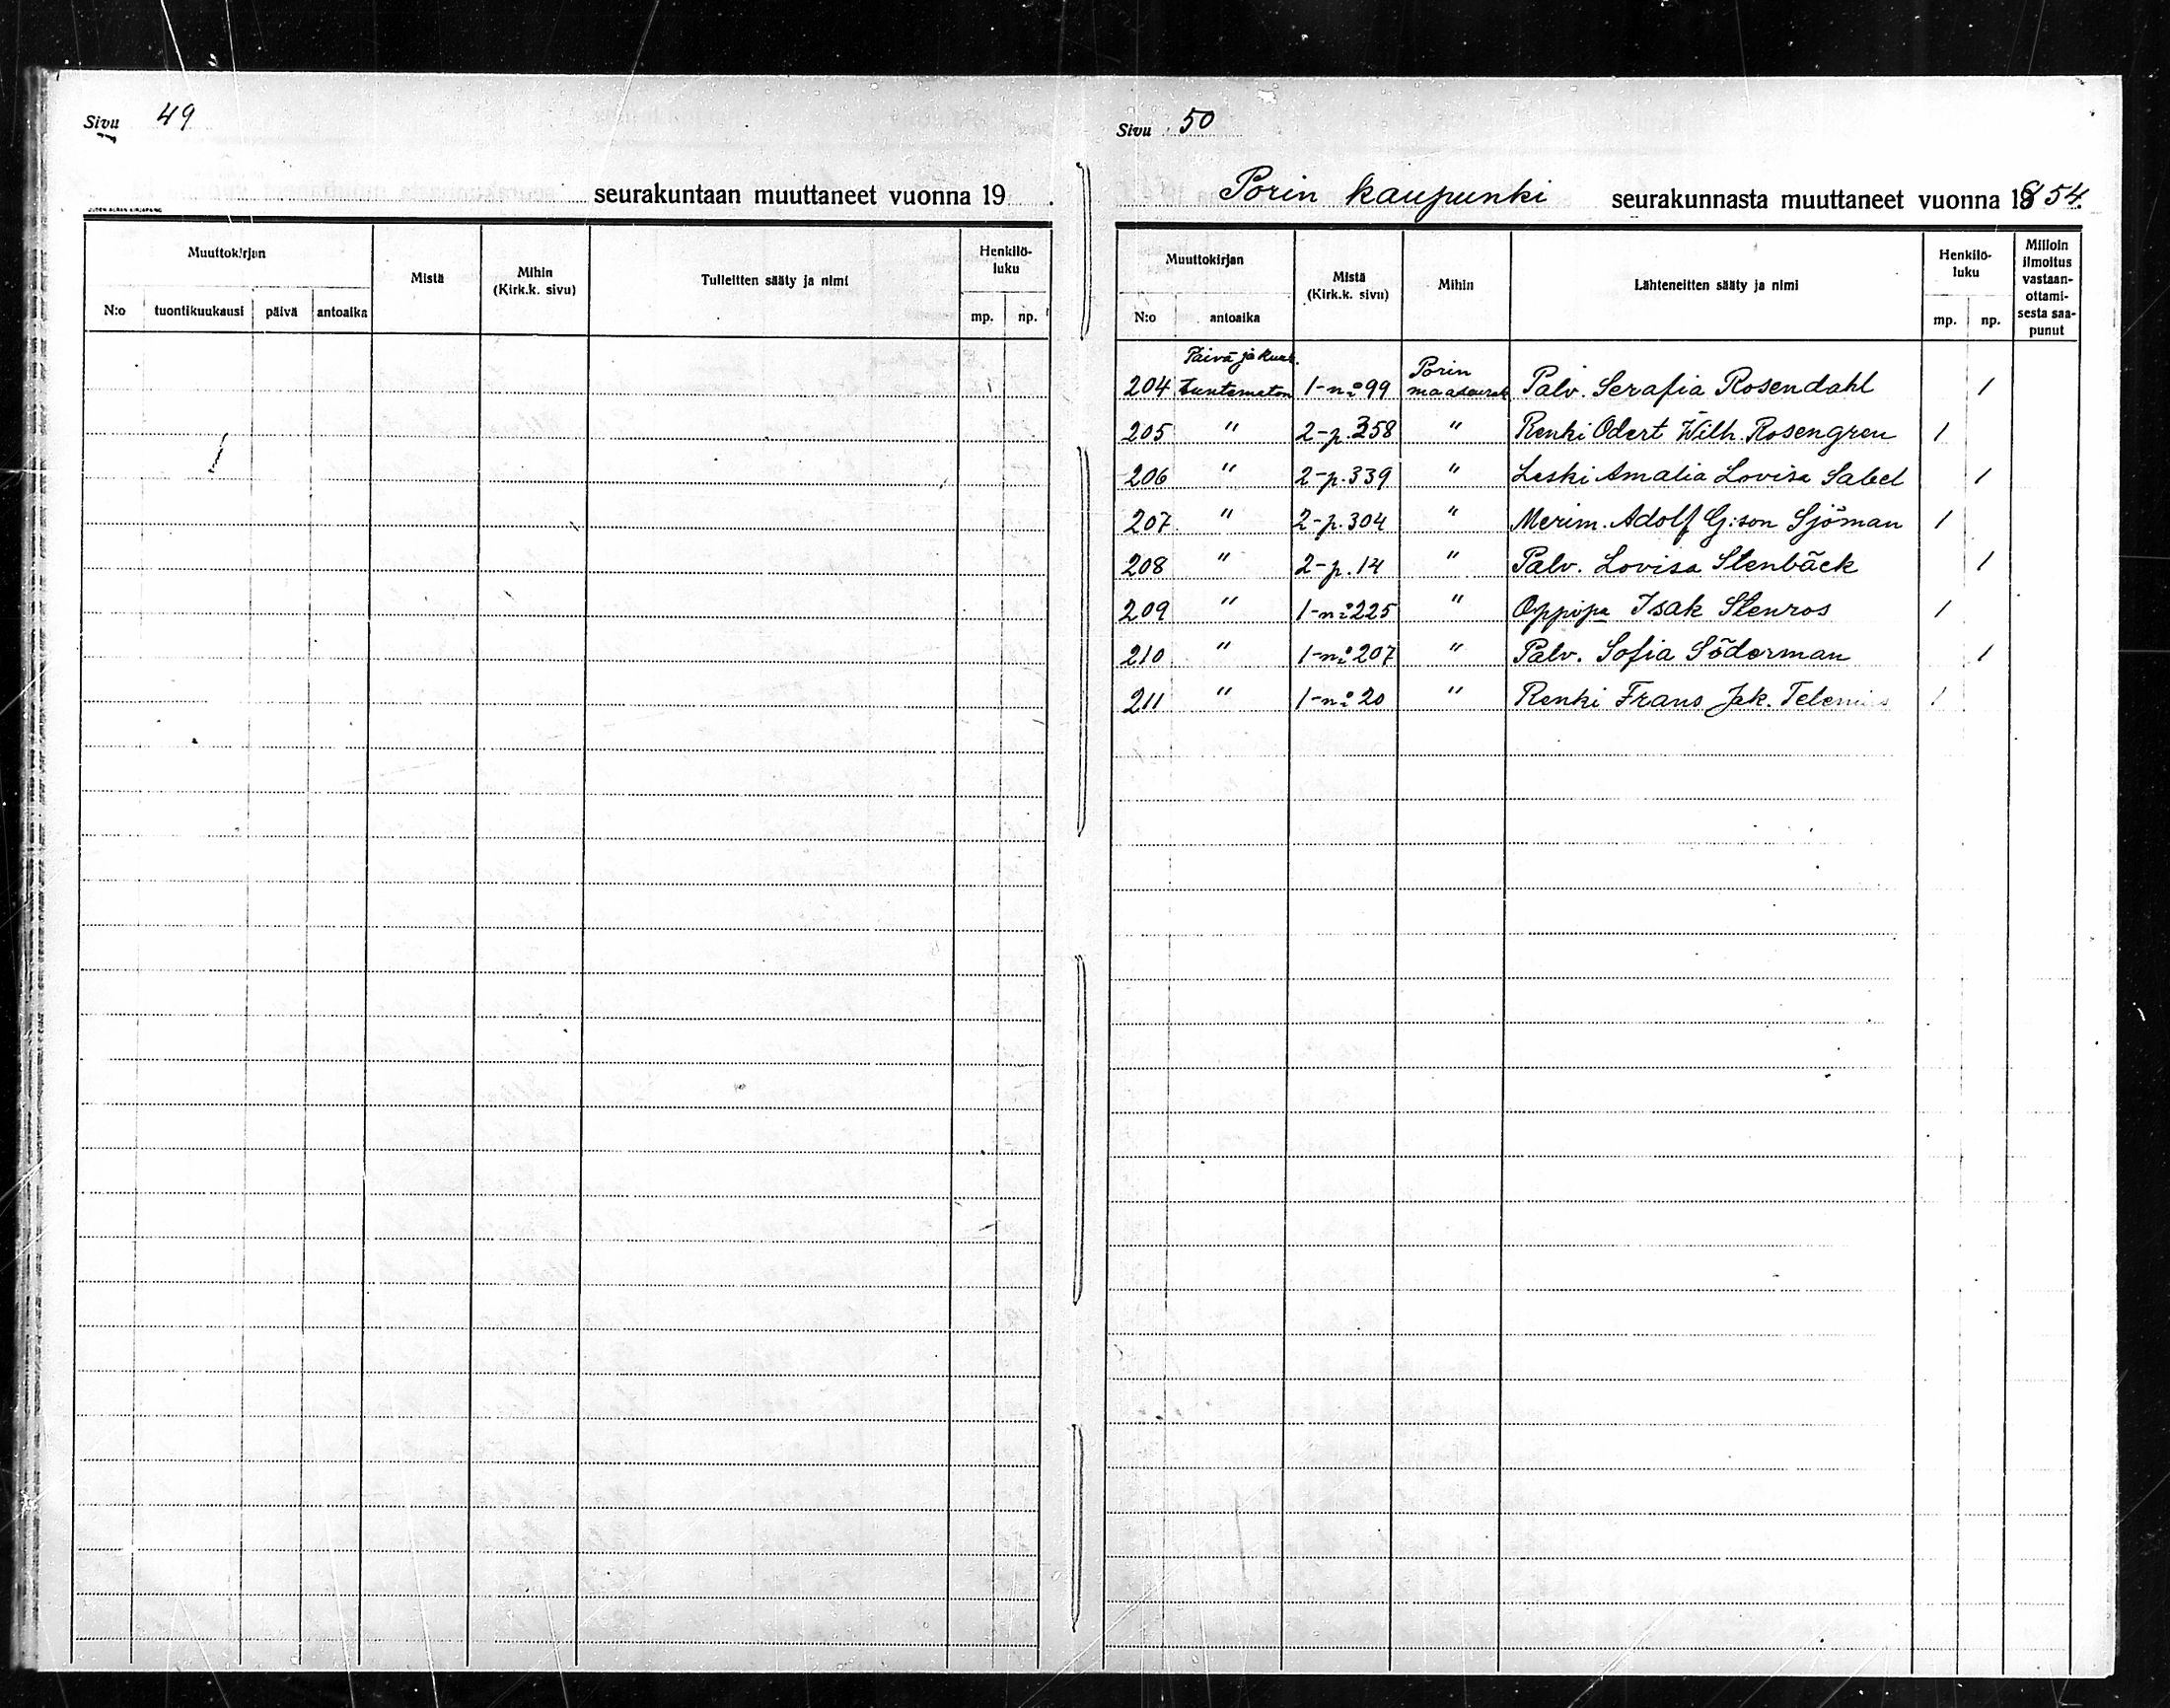 Sivu 49
seurakuntaan muuttaneet vuonna 19
Muuttokirjan
Mistä
Mihin
(Kirk.k. sivu)
Tulleitten sääty ja nimi
Henkilö-
luku
N:o tuontikuukausi päivä antoaika
mp. np.
Sivu 50
Porin kaupunki seurakunnasta muuttaneet vuonna 1854.
Muuttokirjan
Mistä
(Kirk.k. sivu)
Mihin
Lähteneitten sääty ja nimi
Henkilö-
luku
Milloin
ilmoitus
vastaan-
ottami-
sesta saa-
punut
N:o antoaika
mp. np.
Päivä ja kuuk. Porin
204 tuntematon 1-n:o 99 maaseurak. Palv. Serafia Rosendahl 1
205 " 2-p. 358 " Renki Odert Wilh. Rosengren 1
206 " 2-p. 339 " Leski Amalia Lovisa Sabel 1
207 " 2-p. 304 " Merim. Adolf G:son Sjöman 1
208 " 2-p. 14 " Palv. Lovisa Stenbäck 1
209 " 1-n:o 225 " Oppipa Isak Stenros 1
210 " 1-n:o 207 " Palv. Sofia Söderman 1
211 " 1-n:o 20 " Renki Frans Jak. 1